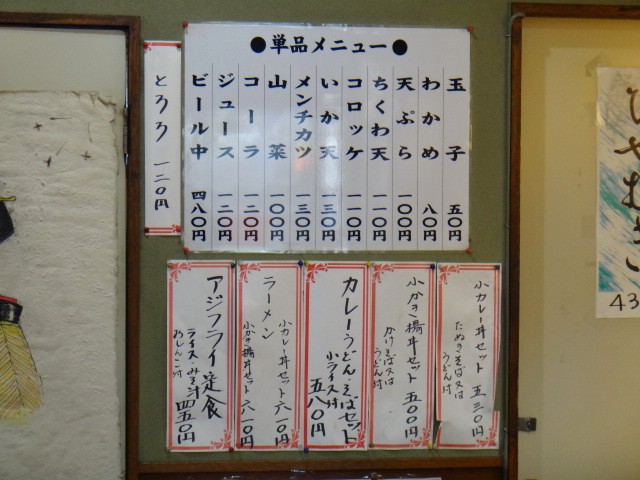 ●単品メニュー●
玉子 五〇円
わかめ 八〇円
天ぷら 一〇〇円
ちくわ天 一一〇円
コロッケ 一一〇円
いか天 一三〇円
メンチカツ 一三〇円
山菜 一〇〇円
コーラ 一二〇円
ジュース 一二〇円
ビール中 四八〇円
とろろ 一二〇円
小カレー丼セット 五三〇円
たぬきそば又はうどん付
小かき揚丼セット 五〇〇円
かけそば又はうどん付
カレーうどん、そばセット
小ライス付 五八〇円
ラーメン
小カレー丼セット 六一〇円
小かき揚丼セット 六一〇円
アジフライ定食
ライス・みそ汁
おしんこ付 四五〇円
ひやむぎ
43